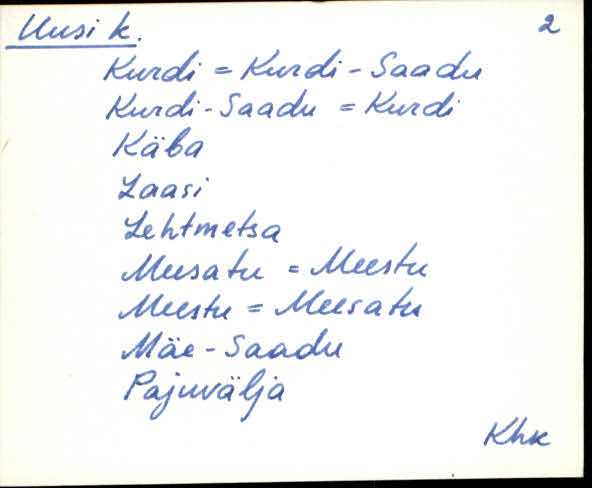 Uusi k. 2
Kurdi = Kurdi-Saadu
Kurdi-Saadu = Kurdi
Käba
Laasi
Lehtmetsa
Meesatu = Meestu
Meestu = Meesatu
Mäe-Saadu
Pajuvälja
Khk